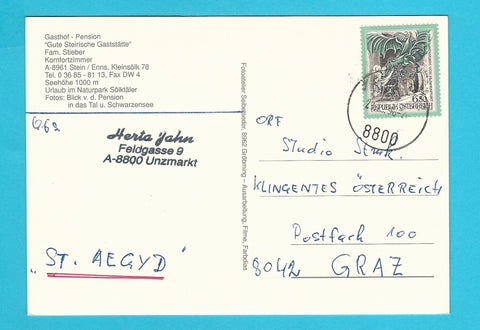 Gasthof - Pension
"Gute Steirische Gaststätte"
Fam. Stieber
Komfortzimmer
A-8961 Stein / Enns. Kleinsölk 78
Tel. 0 36 85 - 81 13, Fax DW 4
Seehöhe 1000 m
Urlaub im Naturpark Sölktäler
Fotos: Blick v. d. Pension
in das Tal u. Schwarzensee
Herta Jahn
Feldgasse 9
A-8800 Unzmarkt
"ST. AEGYD"
8962 Gröbming – Ausarbeitung, Filme, Farbdias
6.50
REPUBLIK ÖSTERREICH
8800
ORF
Studio
KLINGENTES ÖSTERREICH
Postfach 100
8042 GRAZ